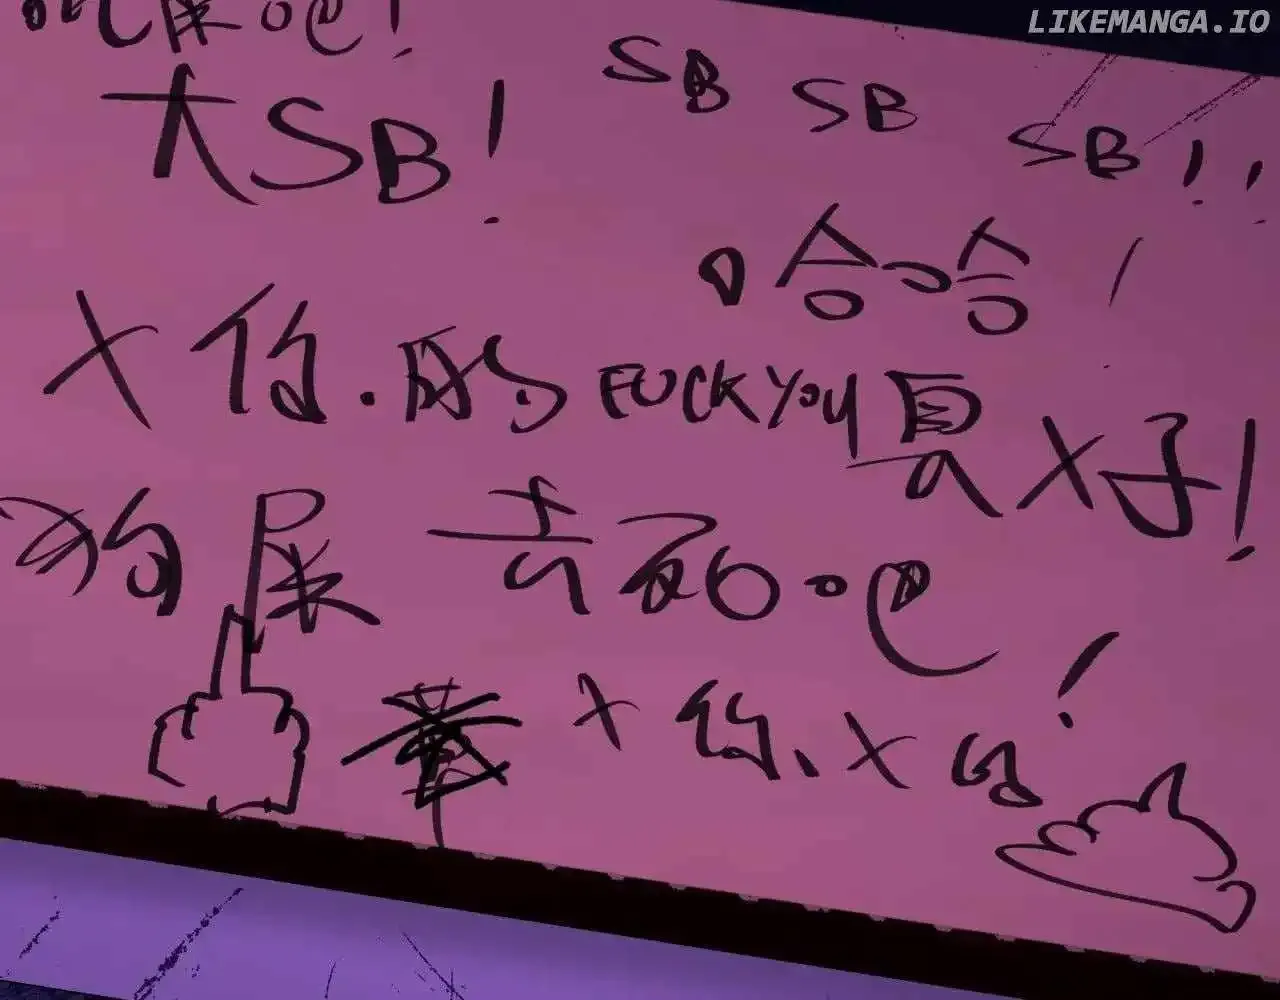 LIKEMANGA.IO
吃屎吧!
SB SB SB!!
大SB!
哈哈!
X你.的FUCK YOU 真X子!
狗屎 去死吧!
X你、X的